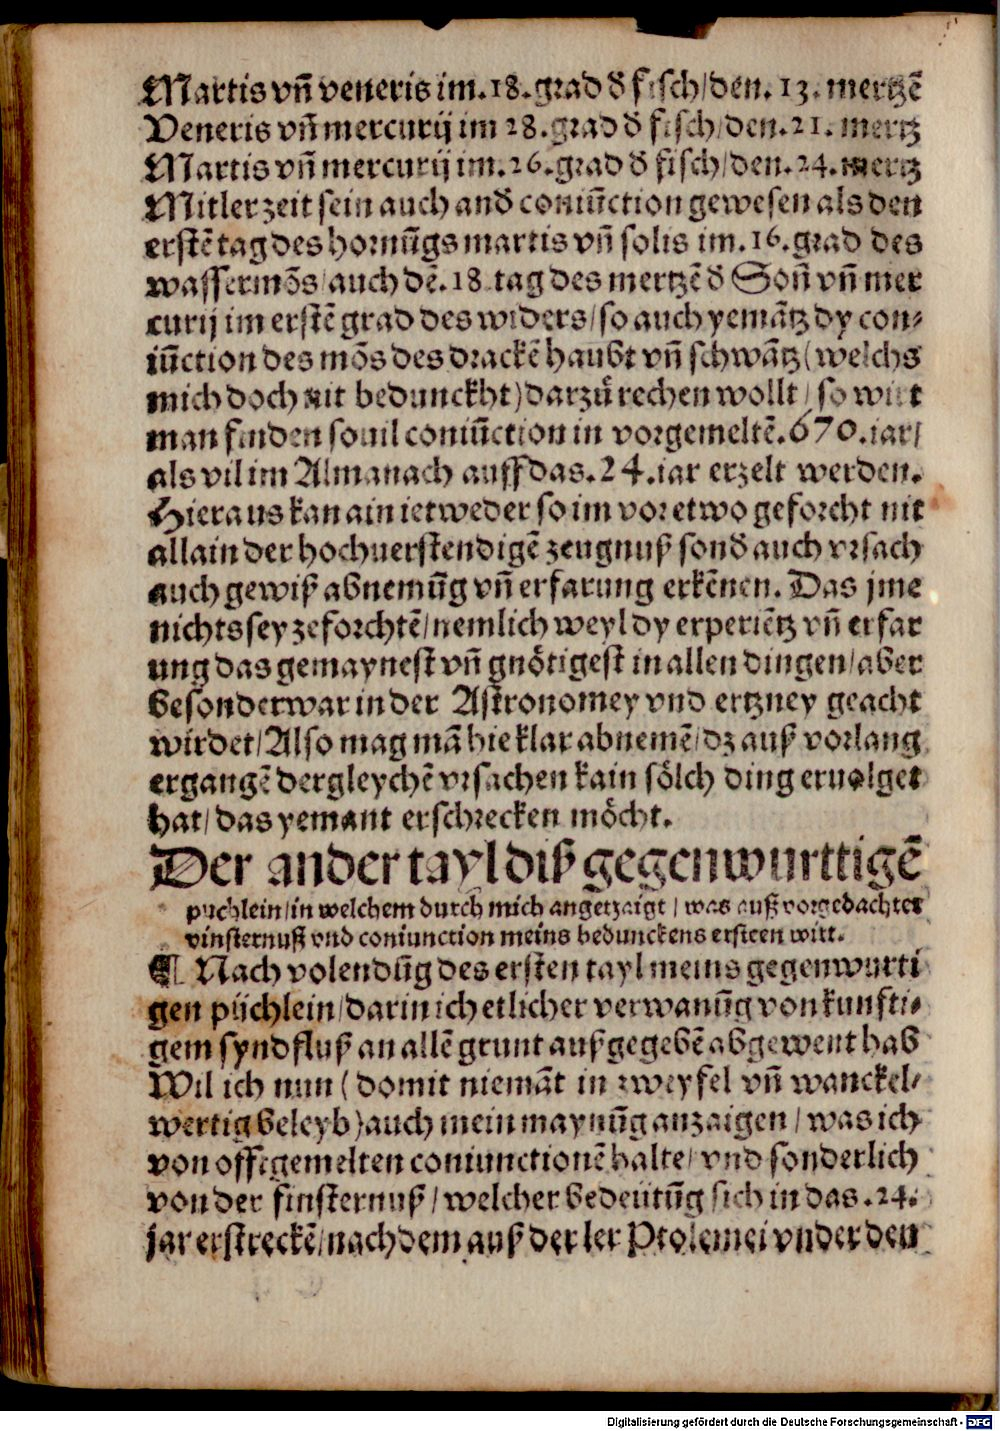 Martis vn̄ veneris im. 18. grad d̕ fisch/den. 13. mertzē
Veneris vn̄ mercurij im 28. grad d̕ fisch/den. 21. mertz
Martis vn̄ mercurij im. 26. grad d̕ fisch/den. 24. mertz
Mitler zeit sein auch and̕ coniūction gewesen als den
erstē tag des hornūgs martis vn̄ solis im. 16. grad des
wassermōs/auch dē. 18 tag des mertzē d̕ Son̄ vn̄ mer
curij im erstē grad des widers/so auch yemātz dy con⸗
iūction des mōs des drackē haubt vn̄ schwātz (welchs
mich doch nit bedunckht) darzů rechen wollt/ so wirt
man finden souil coniūction in vorgemeltē. 670. iar/
als vil im Almanach auff das. 24. iar erzelt werden.
Hieraus kan ain ietweder so im vor etwo geforcht nit
allain der hochuerstendigē zeugnuß sond̕ auch vrsach
auch gewiß abnemūg vn̄ erfarung erkēnen. Das jme
nichts sey zeforchtē/nemlich weyl dy experiētz vn̄ erfar
ung das gemaynest vn̄ gnötigest in allen dingen/aber
besonderwar in der Astronomey vnd ertzney geacht
wirdet/Also mag mā hie klar abnemē/dz auß vorlang
ergangē dergleychē vrsachen kain sölch ding eruolget
hat/das yemant erschrecken möcht.
Der ander tayl diß gegenwurttigē
puchlein/in welchem durch mich angetzaigt/was auß vorgedachter
vinsternuß vnd coniunction meins bedunckens erstreen wirt.
¶ Nach volendūg des ersten tayl meins gegenwurti
gen püchlein/darin ich etlicher verwanūg von kunfti⸗
gem syndfluß an allē grunt auß gegebē abgewent hab
Wil ich nun (domit niemāt in zweyfel vn̄ wanckel⸗
wertig beleyb) auch mein maynūg anzaigen/was ich
von offtgemelten coniunctionē halte/vnd sonderlich
von der finsternuß/welcher bedeütūg sich in das. 24.
jar erstreckē/nachdem auß der ler Ptolemei vnder den
Digitalisierung gefördert durch die Deutsche Forschungsgemeinschaft - DFG